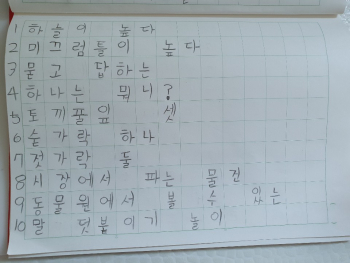 1 하늘이 높다
2 미끄럼틀이 높다
3 묻고 답하는
4 하나는 뭐니?
5 토끼풀잎 셋
6 숟가락 하나
7 젓가락 둘
8 시장에서 파는 물건
9 동물원에서 볼 수 있는
10 말 덧붙이기 놀이